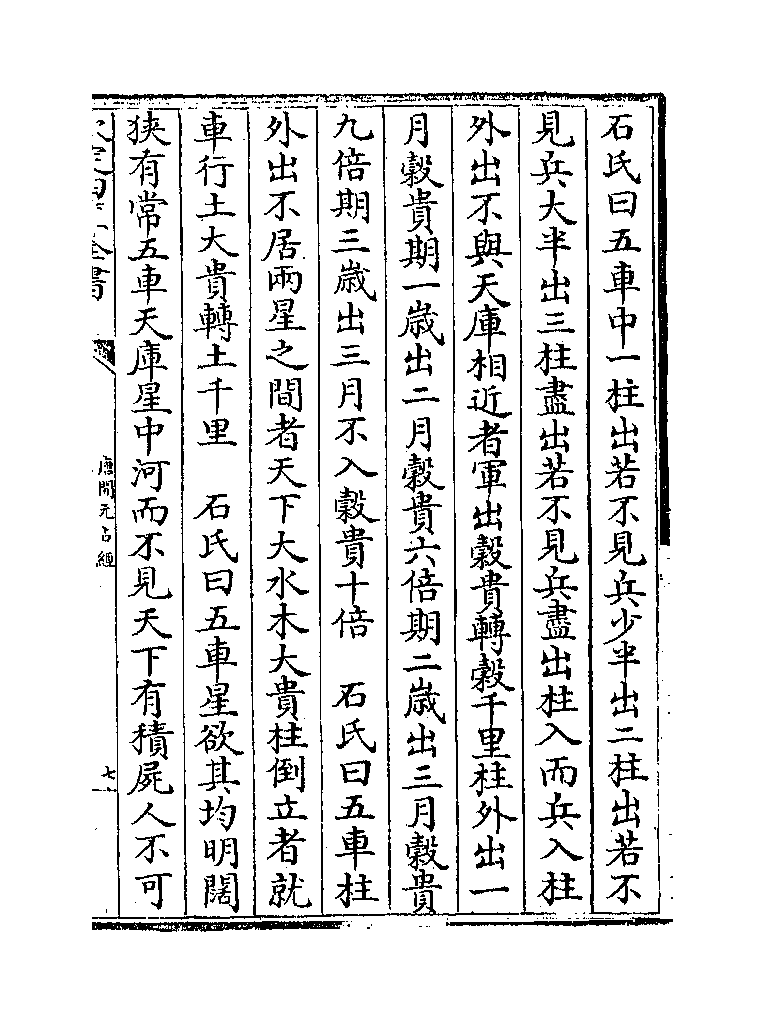 石氏曰五車中一柱出若不見兵少半出二柱出若不
見兵大半出三柱盡出若不見兵盡出柱入而兵入柱
外出不與天庫相近者軍出穀貴轉穀千里柱外出一
月穀貴期一歳出二月穀貴六倍期二歳出三月穀貴
九倍期三歳出三月不入穀貴十倍　石氏曰五車柱
外出不居兩星之間者天下大水木大貴柱倒立者就
車行土大貴轉土千里　石氏曰五車星欲其均明闊
狹有常五車天庫星中河而不見天下有積屍人不可
全書
唐開元占經